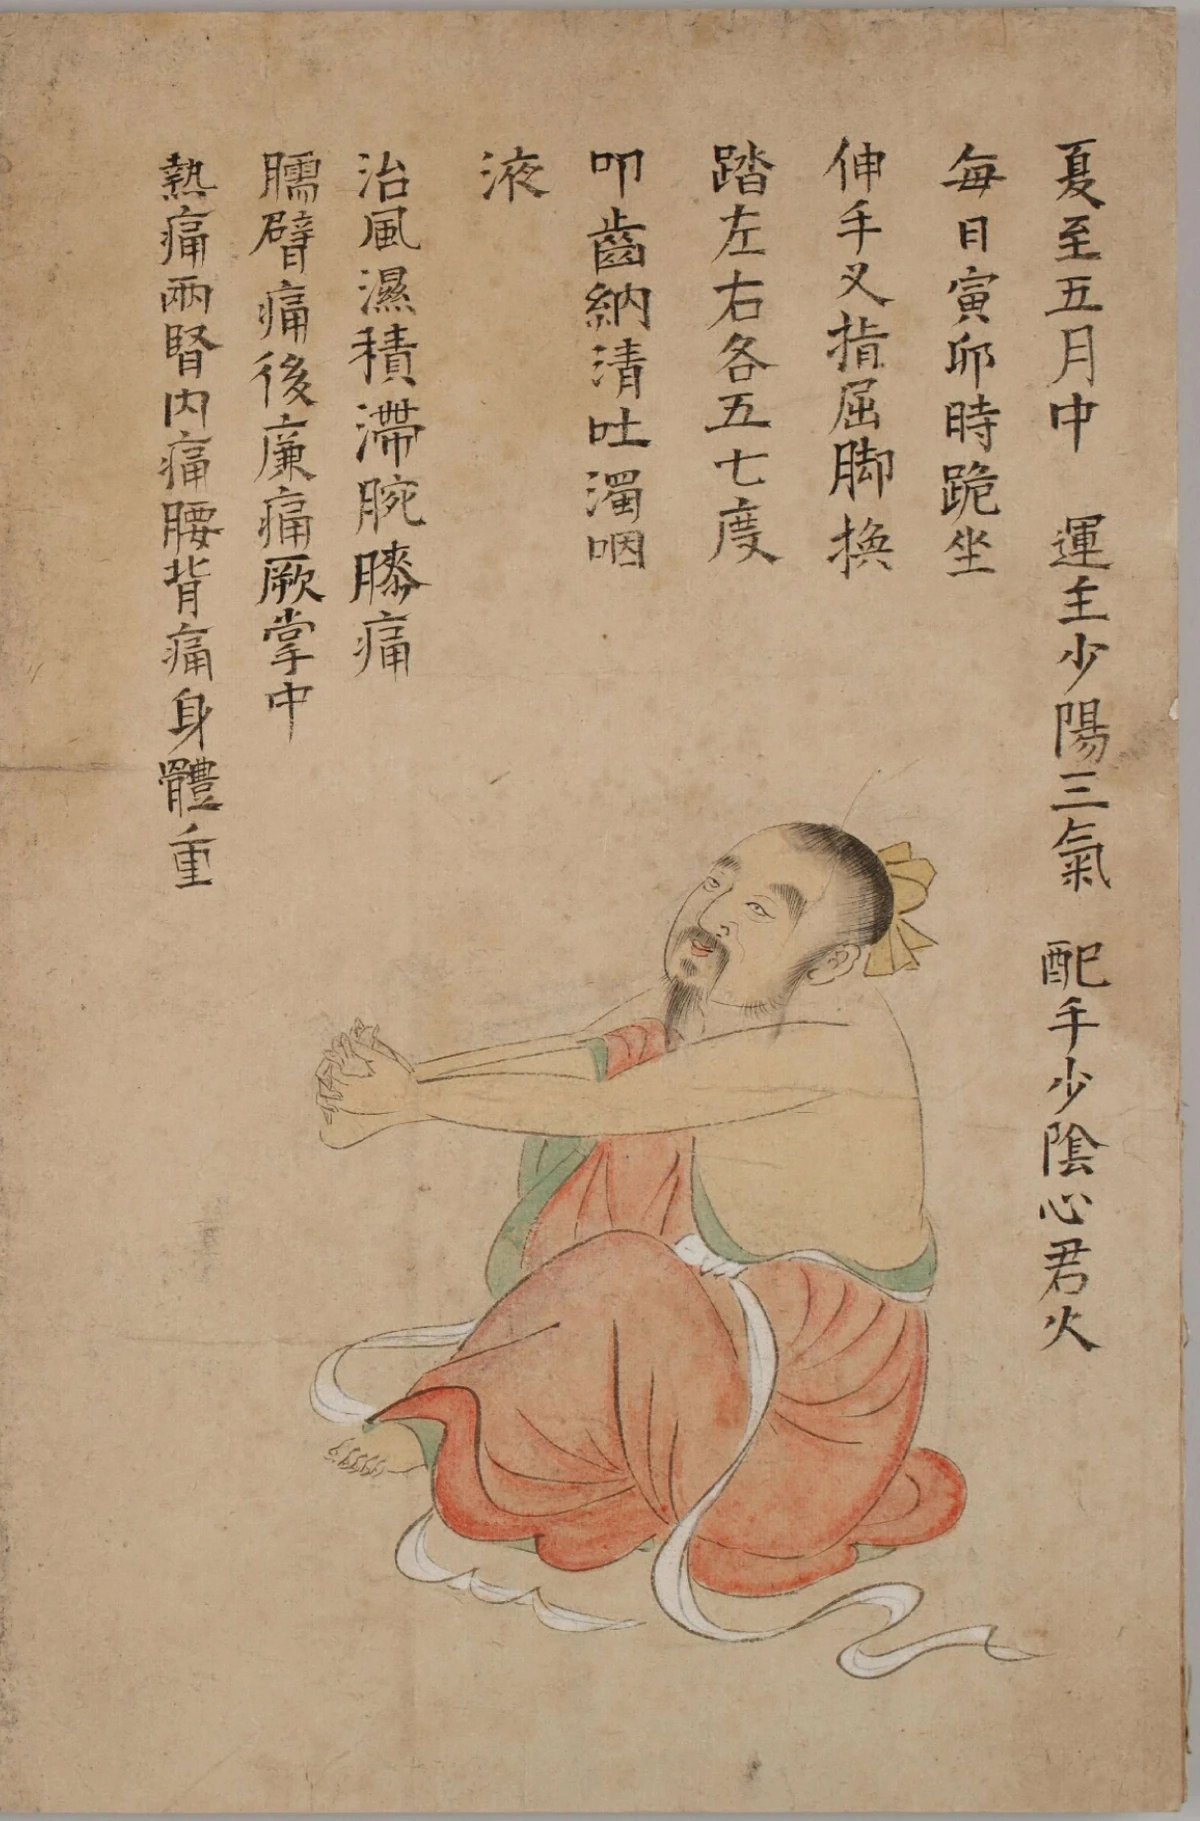 夏至五月中　運主少陽三氣　配手少陰心君火
每日寅卯時跪坐
伸手叉指屈脚換
踏左右各五七度
叩齒納清吐濁咽
液
治風濕積滯腕膝痛
臑臂痛後廉痛厥掌中
熱痛兩腎内痛腰背痛身體重